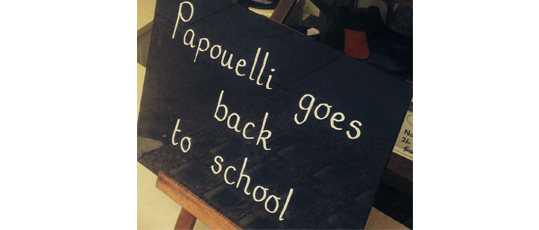 Papouelli goes
back
to school